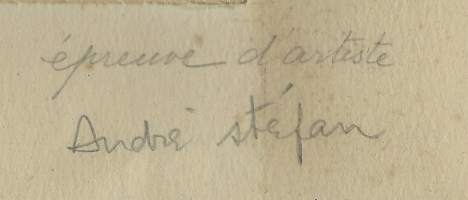 épreuve d'artiste
André stéfan